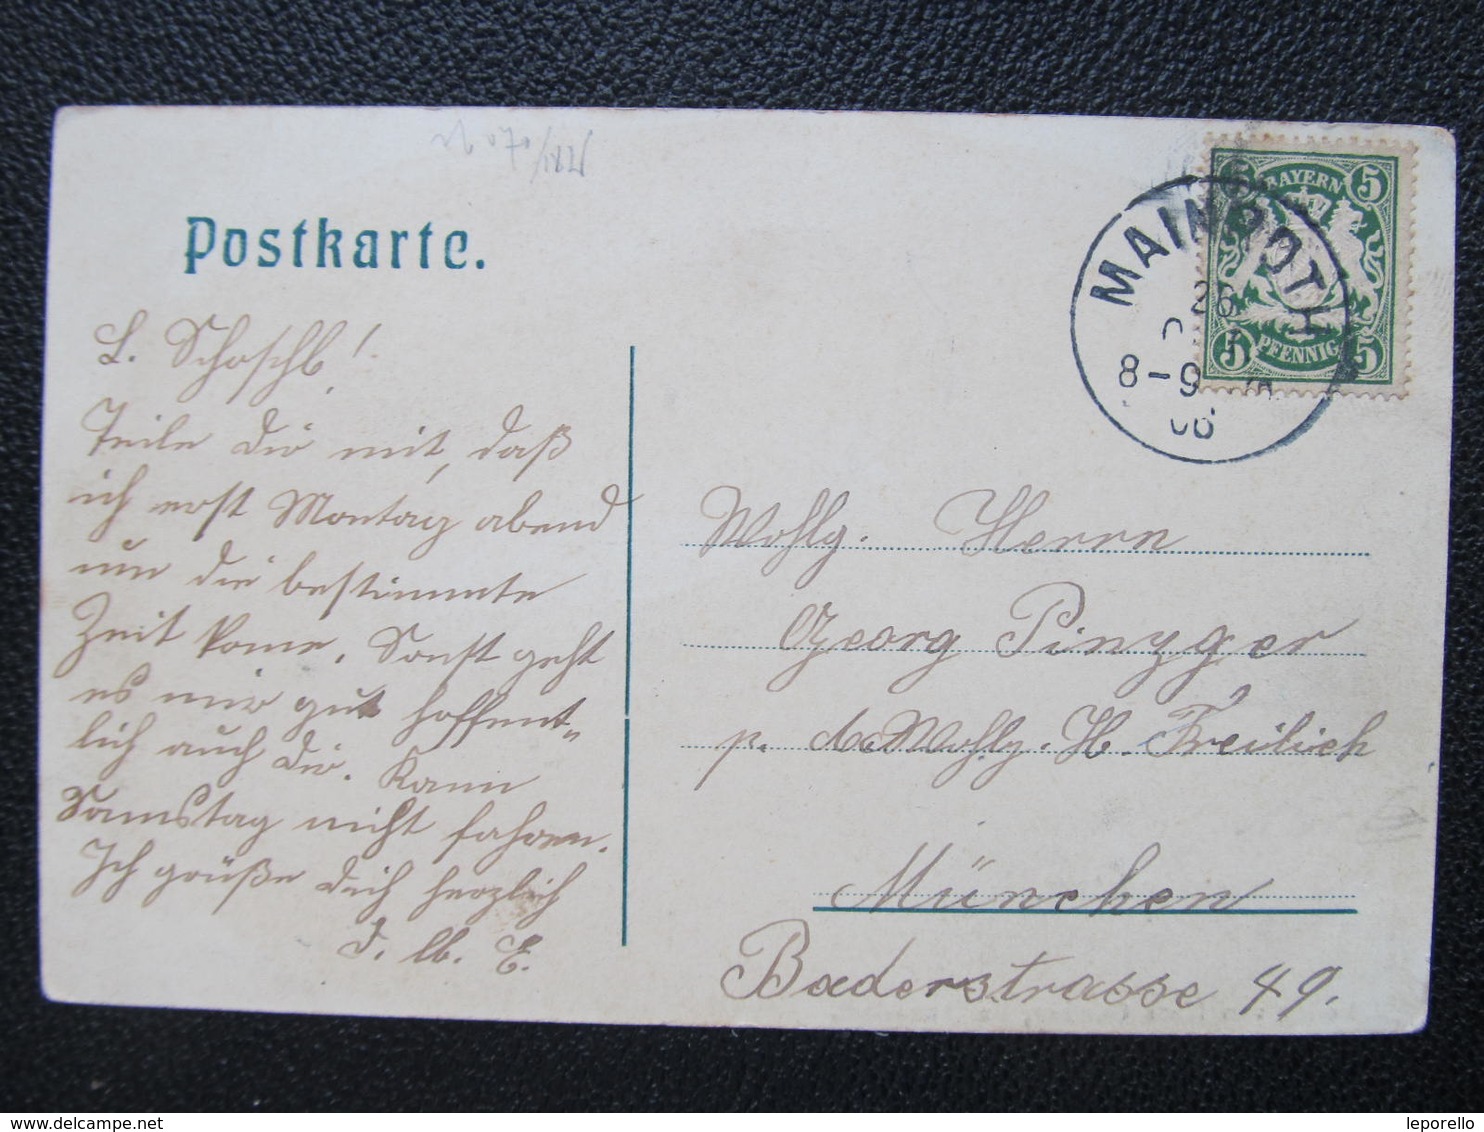 Postkarte.
L. Schoschl!
Teile Dir mit, daß
ich erst Montag abend
um die bestimmte
Zeit kome. Sonst geht
es mir gut hoffent-
lich auch Dir. Kann
Samstag nicht fahren.
Ich grüße Dich herzlich
D. lb. E.
BAYERN
5 5
5 5
PFENNIG
MAINROTH
26
8-9
06
Wohlg. Herrn
Georg Pinzger
p. Wohlg. H. Freilich
München
Baderstrasse 49.
www.delcampe.net
leporello